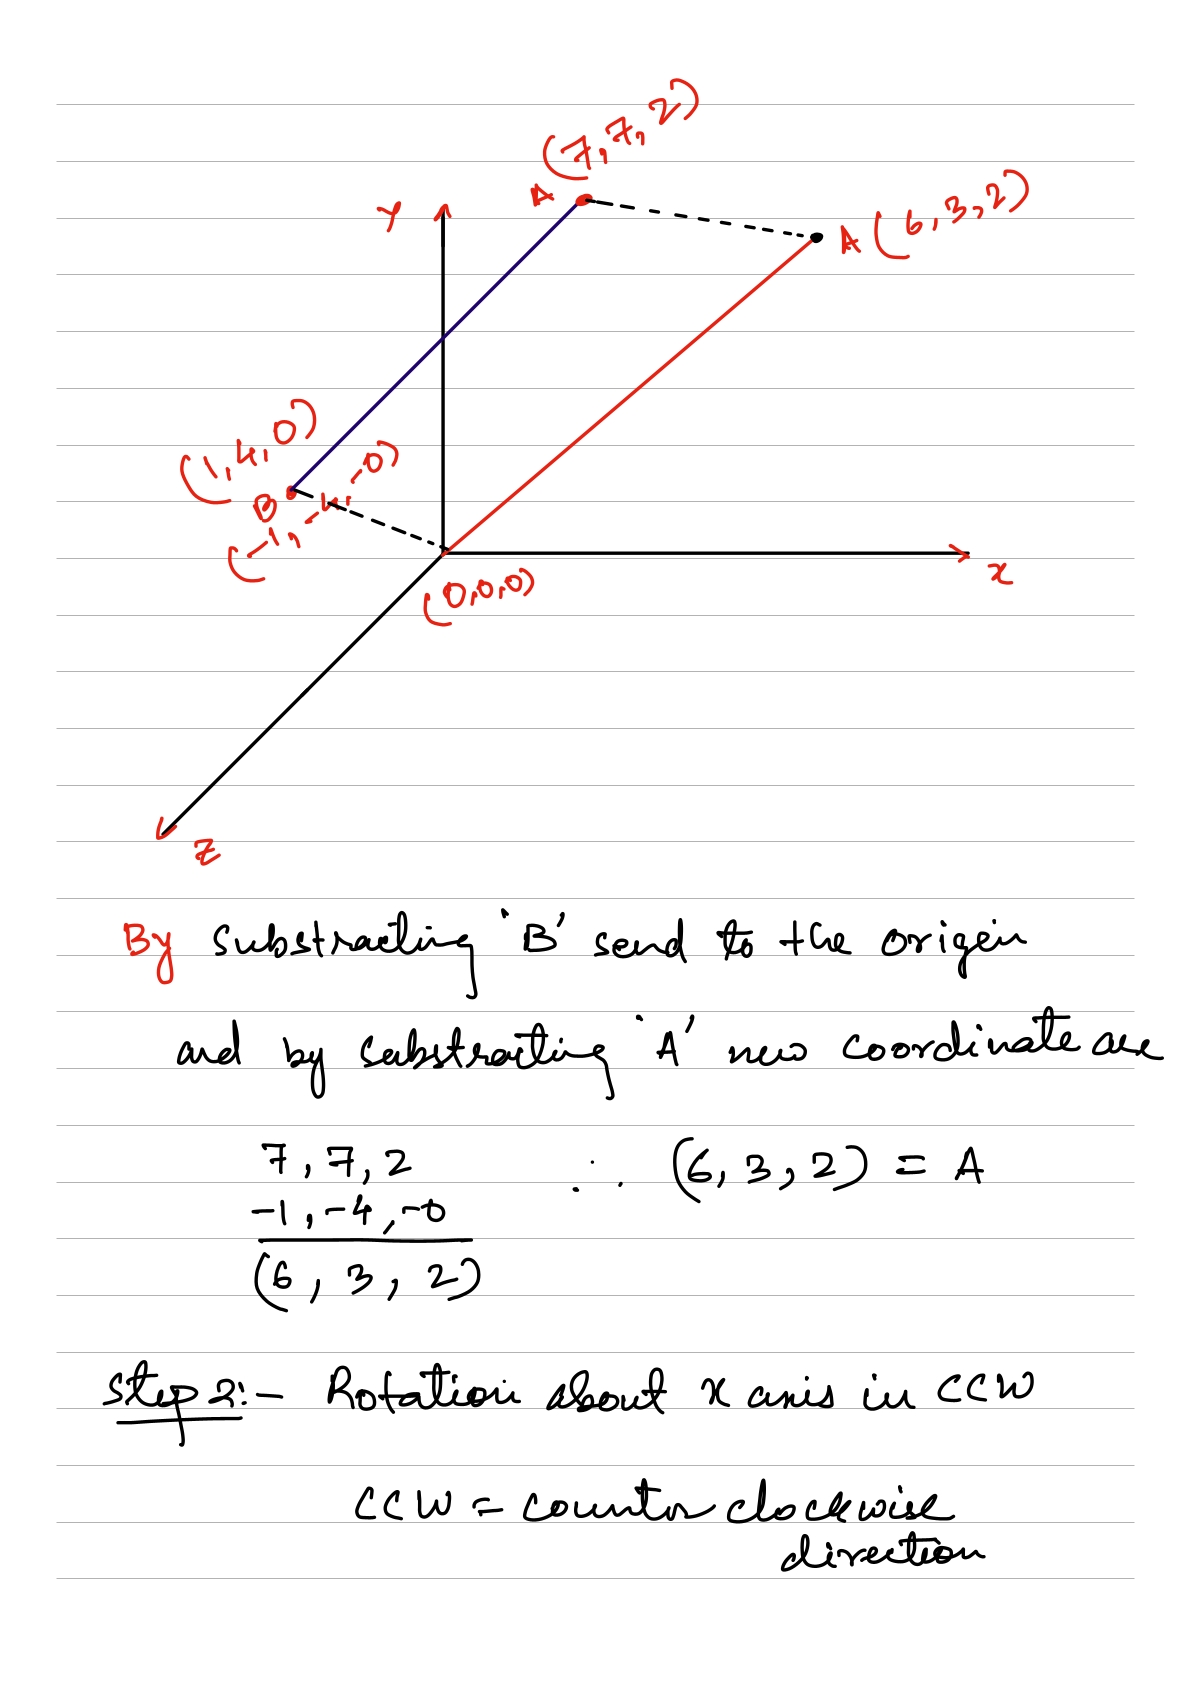 A (7,7,2)
Y
A (6,3,2)
(1,4,0)
B
(-1,-4,-0)
x
(0,0,0)
z
By substracting 'B' send to the origin
and by substracting 'A' new coordinate are
7,7,2 ∴ (6,3,2) = A
-1,-4,-0
(6,3,2)
Step 2:- Rotation about x axis in CCW
CCW = counter clockwise
direction